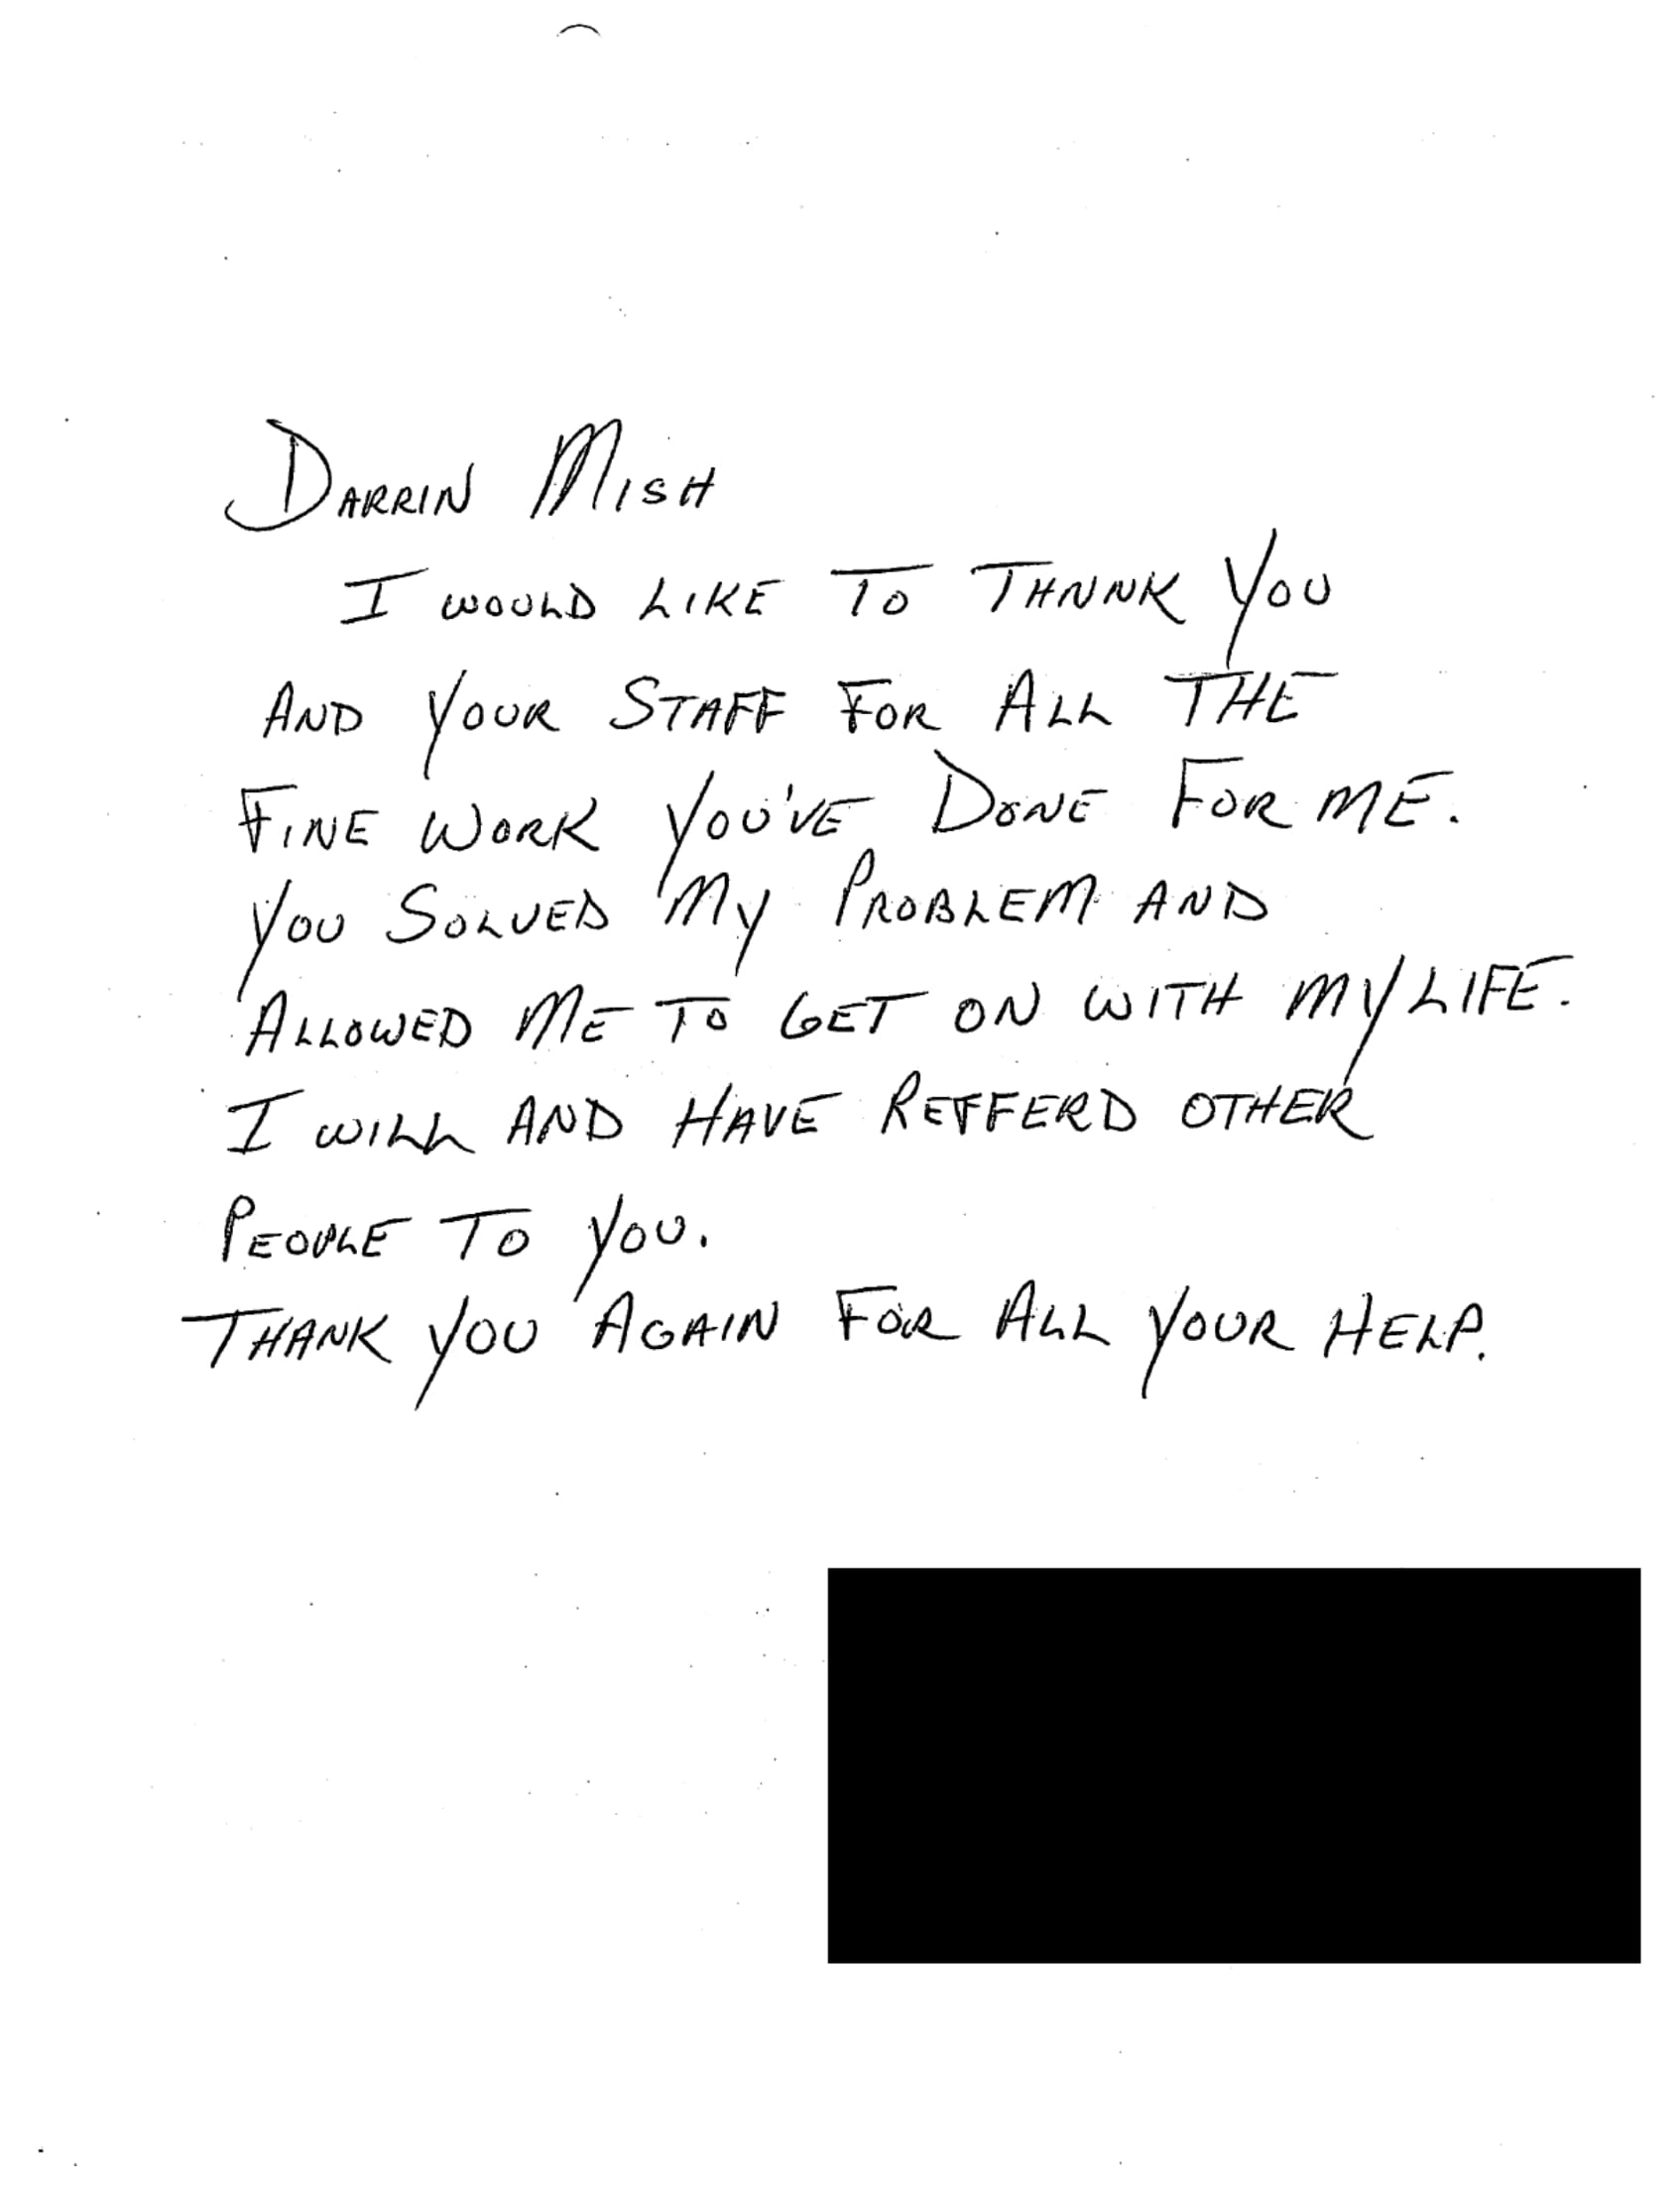 DARRIN MISH
I WOULD LIKE TO THNNK YOU
AND YOUR STAFF FOR ALL THE
FINE WORK YOU'VE DONE FOR ME.
YOU SOLVED MY PROBLEM AND
ALLOWED ME TO GET ON WITH MY LIFE.
I WILL AND HAVE REFFERD OTHER
PEOPLE TO YOU.
THANK YOU AGAIN FOR ALL YOUR HELP.